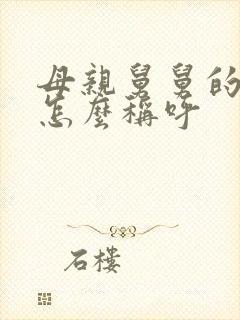 母親舅舅的
怎麼稱呼
石樓